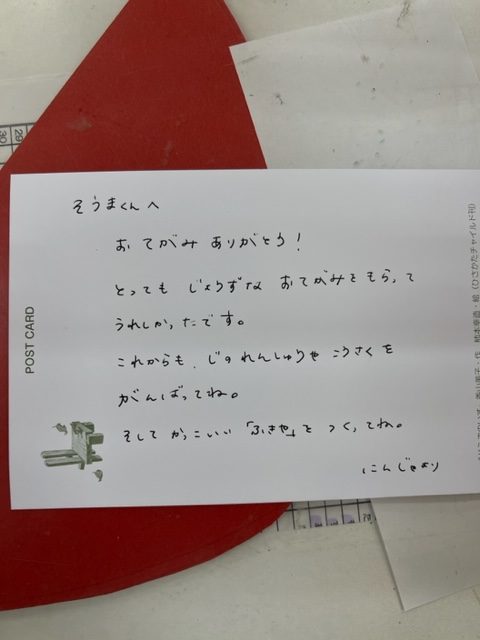 そうまくんへ
おてがみ ありがとう！
とっても じょうずな おてがみをもらって
うれしかったです。
これからも、じの れんしゅうや こうさくを
がんばってね。
そして かっこいい「ふきや」を つくってね。
にんじゃより
POST CARD
29
30